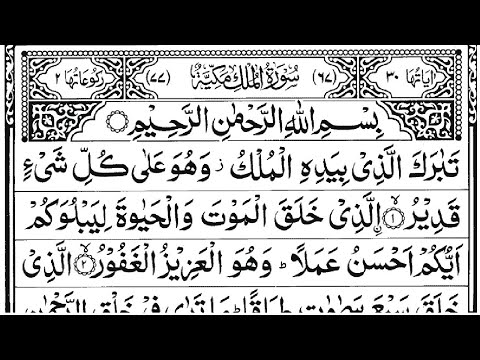 اٰیَاتُهَا ۳۰ (۶۷) سُوْرَةُ الْمُلْكِ مَكِّیَّةٌ (۷۷) رُكُوْعَاتُهَا ۲
بِسْمِ اللّٰهِ الرَّحْمٰنِ الرَّحِیْمِ
تَبٰرَكَ الَّذِیْ بِیَدِهِ الْمُلْكُ ؗ وَهُوَ عَلٰی كُلِّ شَیْءٍ
قَدِیْرُ ۙ﴿۱﴾ ۨالَّذِیْ خَلَقَ الْمَوْتَ وَالْحَیٰوةَ لِیَبْلُوَكُمْ
اَیُّكُمْ اَحْسَنُ عَمَلًا ؕ وَهُوَ الْعَزِیْزُ الْغَفُوْرُ ۙ﴿۲﴾ الَّذِیْ
خَلَقَ سَبْعَ سَمٰوٰتٍ طِبَاقًا ؕ مَا تَرٰی فِیْ خَلْقِ الرَّحْمٰنِ